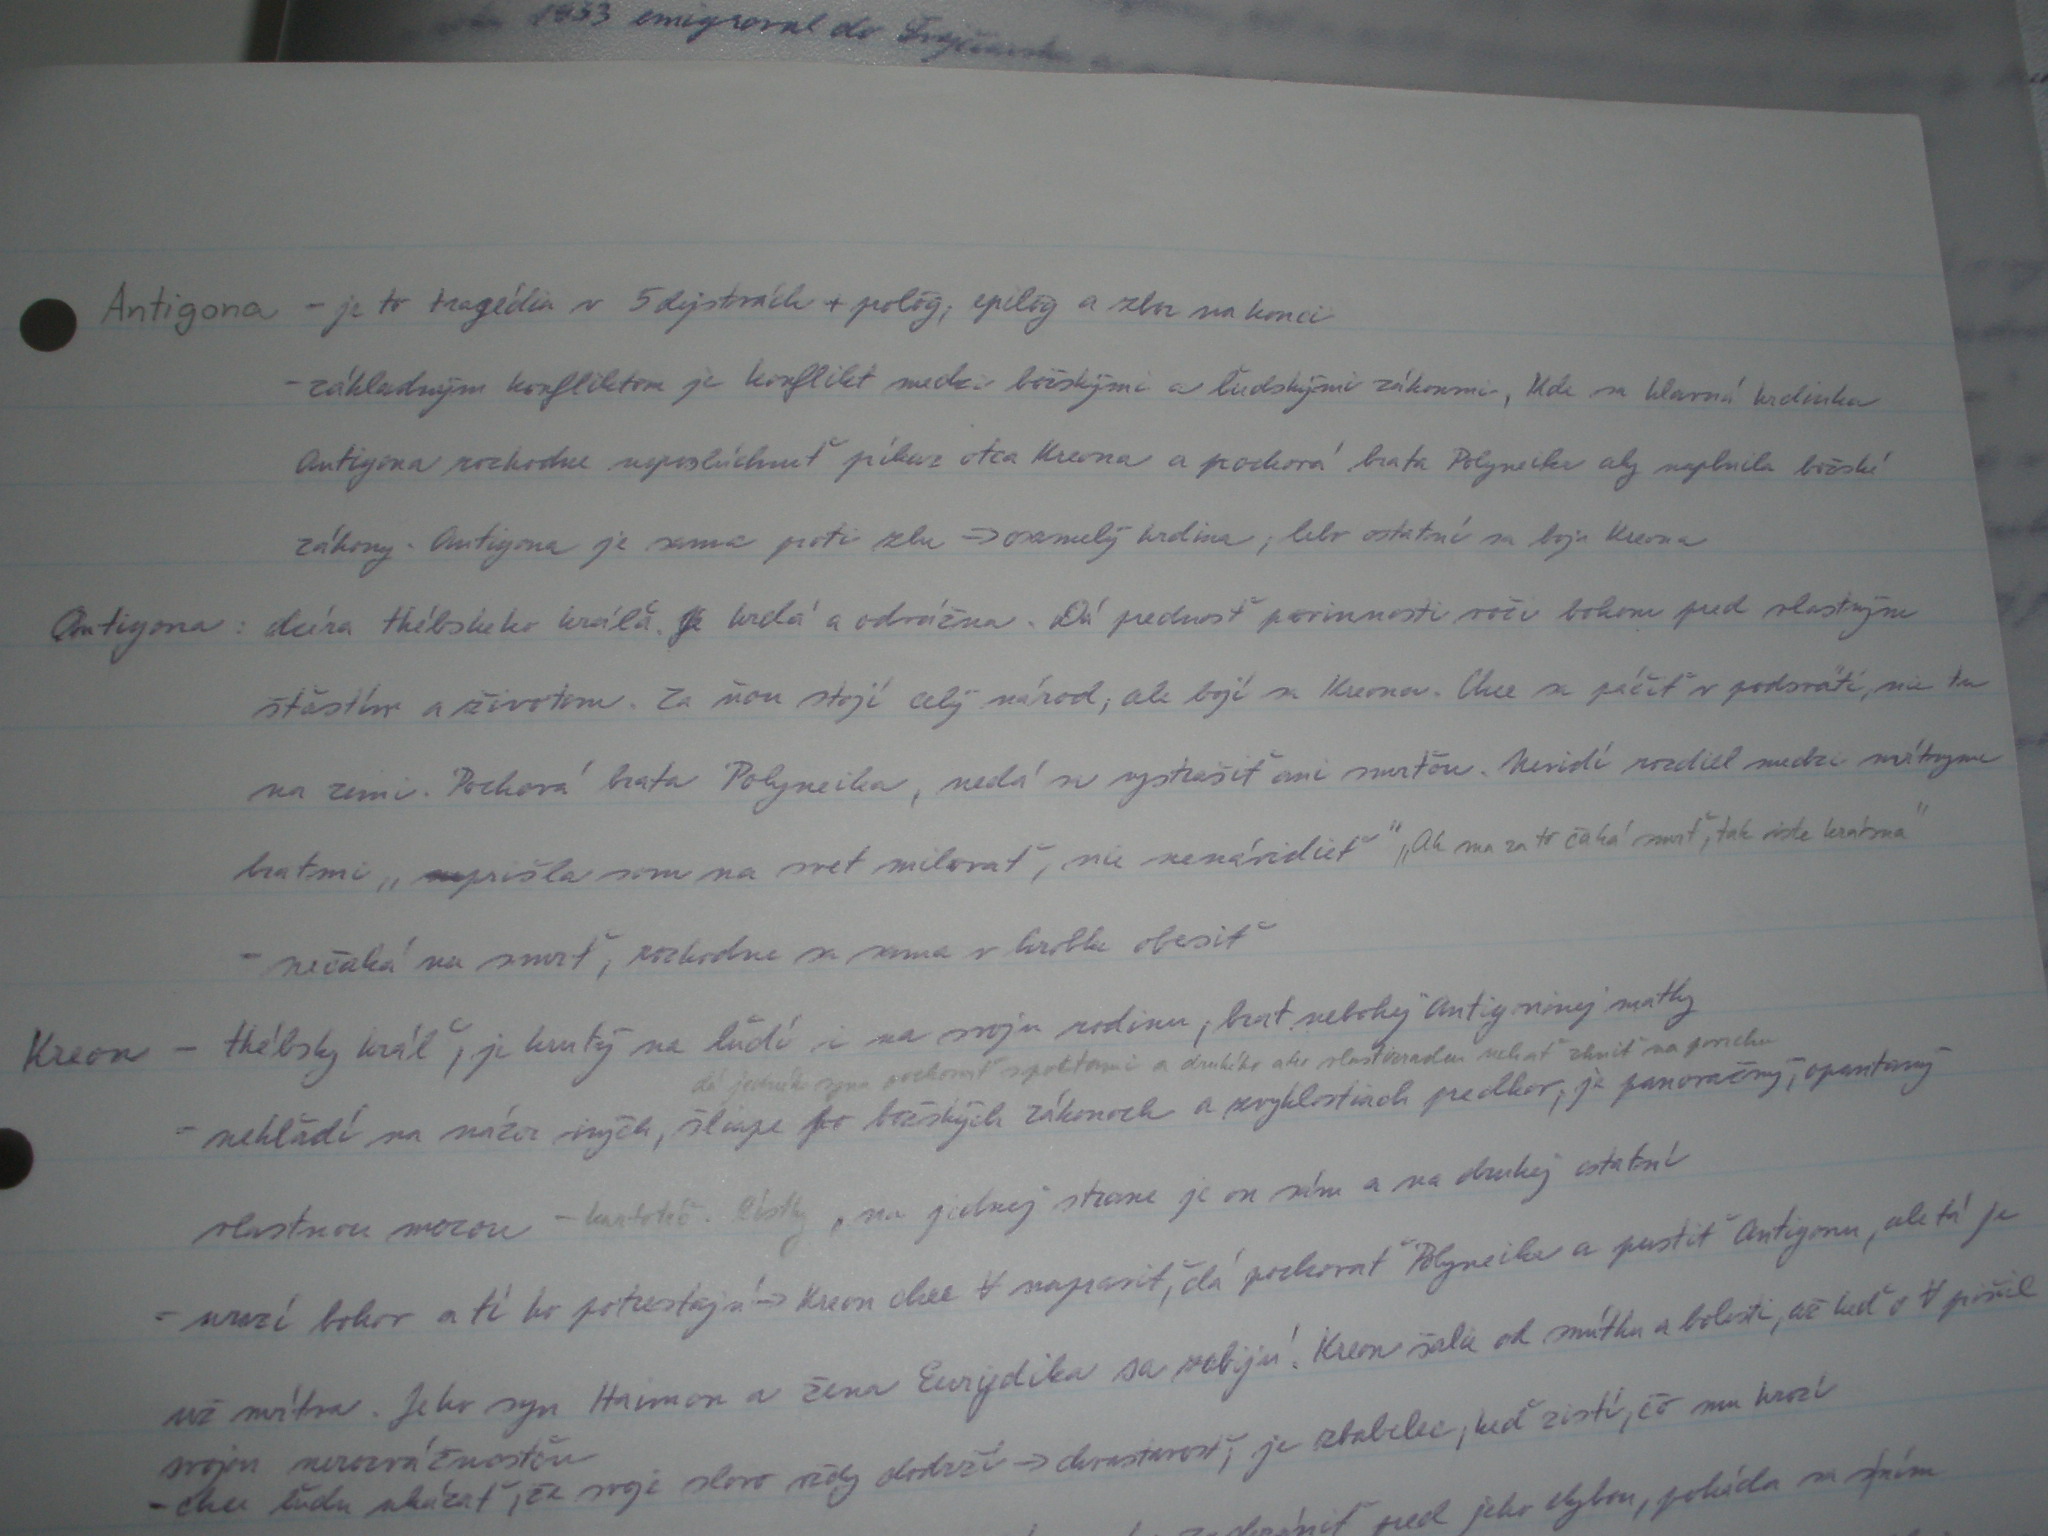 1933 emigroval do Švajčiarska
Antigona - je to tragédia v 5 dejstvách + pológ, epilóg a zbor na konci
- základným konfliktom je konflikt medzi božskými a ľudskými zákonmi, kde sa hlavná hrdinka
Antigona rozhodne neposlúchnuť píkaz otca Kreona a pochová brata Polyneika aby naplnila božské
zákony. Antigona je sama proti zlu => osamelý hrdina, lebo ostatní sa boja Kreona
Antigona: dcéra thébskeho kráľa. Je hrdá a odvážna. Dá prednosť povinnosti voči bohom pred vlastným
šťastím a životom. Za ňou stojí celý národ, ale bojí sa Kreona. Chce sa páčiť v podsvätí, nie tu
na zemi. Pochová brata Polyneika, nedá sa vystrašiť ani smrťou. Nevidí rozdiel medzi mŕtvymi
bratmi „prišla som na svet milovať, nie nenávidieť" „Ak ma za to čaká smrť, tak iste krásna"
- nečaká na smrť, rozhodne sa sama v hrobke obesiť
Kreon - thébsky kráľ, je krutý na ľudí i na svoju rodinu, brat nebohej Antigoninej matky
dá jedného syna pochovať s poctami a druhého ako vlastizradcu nechať zhniť na povrchu
- nehľadí na názor iných, šliape po božských zákonoch a zvyklostiach predkov, je panovačný, opantaný
vlastnou mocou - , na jednej strane je on sám a na druhej ostatní
- urazí bohov a tí ho potrestajú => Kreon chce ∀ napraviť, dá pochovať Polyneika a pustiť Antigonu, ale tá je
už mŕtva. Jeho syn Haimon a žena Eurydika sa zabijú. Kreon šalie od smútku a bolesti, až keď o ∀ prišiel
svojou nerozvážnosťou
- chce ľudu ukázať, že svoje slovo vždy dodrží -> chvastavosť, je zbabelec, keď zistí, čo mu hrozí
pred jeho chybou, poháda sa s ním